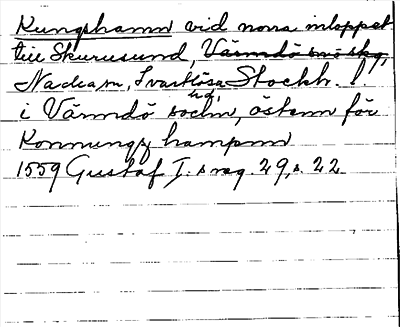 Kungshamn vid norra inloppet
till Skurusund, Värmdö snö skg,
Nacka sn, Svartlösa hd, Stockh. l.
i Värmdö sochn, östann för
Konnungz hampnn
1559 Gustaf I:s reg. 29, s. 22